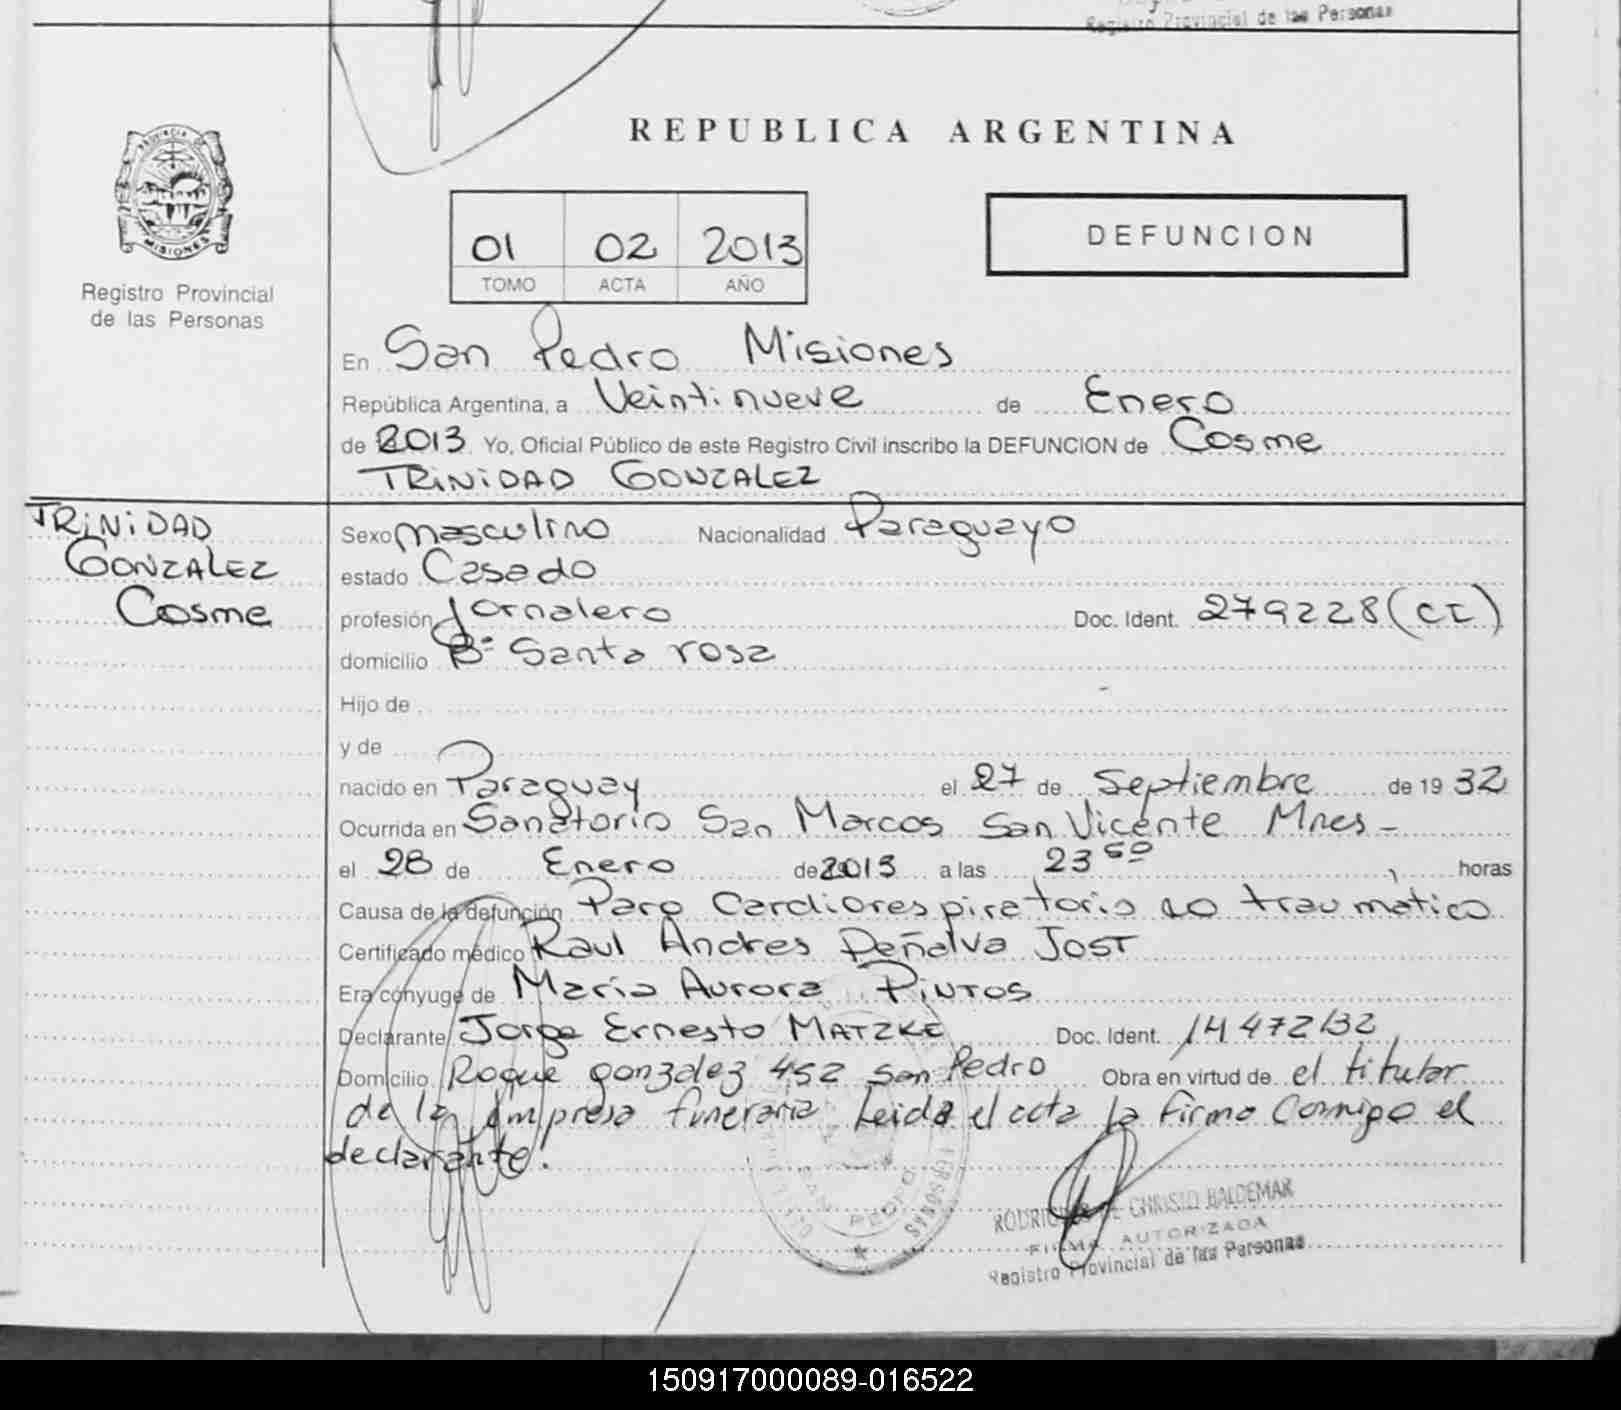 Registro Provincial de las Personas
REPUBLICA ARGENTINA
PROVINCIA DE
MISIONES
Registro Provincial
de las Personas
01 02 2013
TOMO ACTA AÑO
DEFUNCION
En San Pedro Misiones
República Argentina, a Veintinueve de Enero
de 2013 Yo, Oficial Público de este Registro Civil inscribo la DEFUNCION de Cosme
TRINIDAD GONZALEZ
TRINIDAD
GONZALEZ
Cosme
Sexo masculino Nacionalidad Paraguayo
estado Casado
profesión Jornalero Doc. Ident. 279228 (CI)
domicilio B° Santa rosa
Hijo de
y de
nacido en Paraguay el 27 de Septiembre de 1932
Ocurrida en Sanatorio San Marcos San Vicente Mnes -
el 28 de Enero de 2013 a las 23 50 horas
Causa de la defunción Paro Cardiorespiratorio no traumático
Certificado médico Raul Andres Peñalva JOST
Era cónyuge de María Aurora PINTOS
Declarante Jorge Ernesto MATZKE Doc. Ident. 14 472132
Domicilio Roque gonzalez 452 San Pedro Obra en virtud de el titular
de la Empresa funeraria Leida el acta la firma Conmigo el
declarante.
SAN PEDRO
RODRIGUES DE CHRISTO BALDEMAR
FIRMA AUTORIZADA
Registro Provincial de las Personas
150917000089-016522